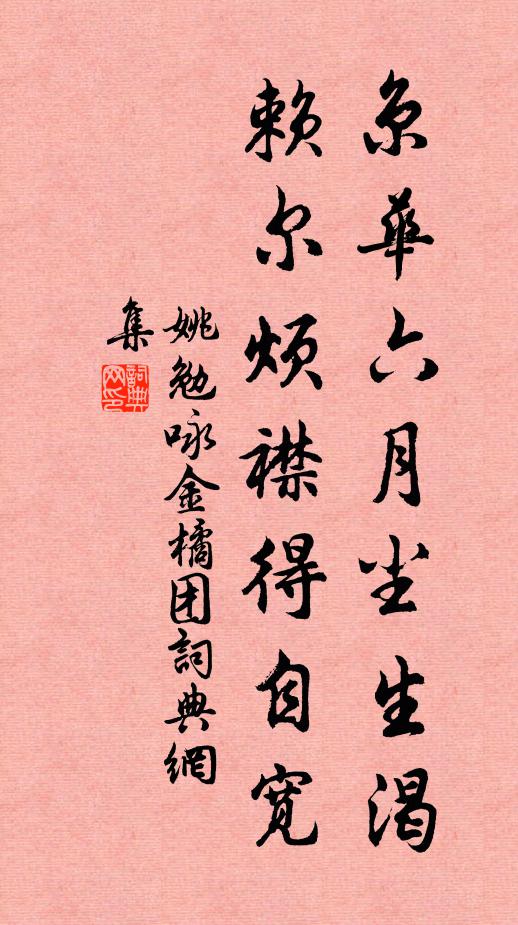 京華六月尘生渴
赖尔烦襟得自宽
姚勉咏金橘团詞典網
集
詞典
网印